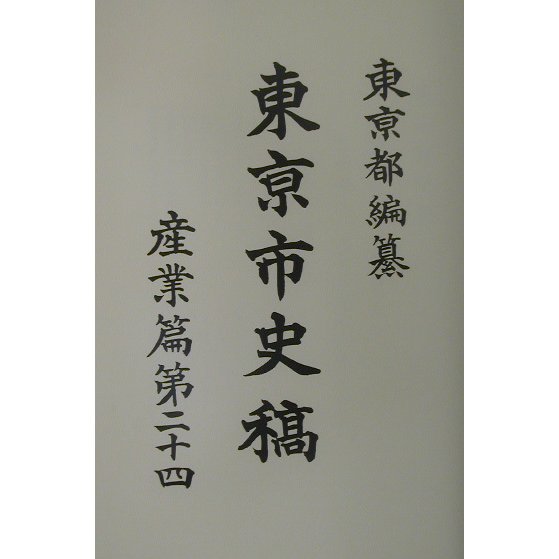 東京都編纂
東京市史稿
産業篇第二十四